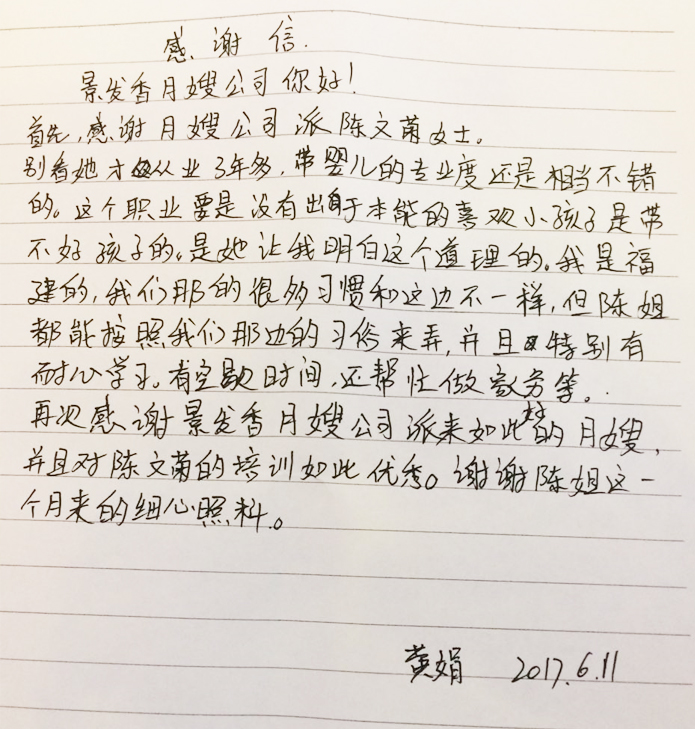 感谢信.
景发香月嫂公司你好!
首先,感谢月嫂公司派陈文菊女士。
别看她才从业3年多,带婴儿的专业度还是相当不错
的。这个职业要是没有出于本能的喜欢小孩子是带
不好孩子的。是她让我明白这个道理的。我是福
建的,我们那的很多习惯和这边不一样,但陈姐
都能按照我们那边的习俗来弄,并且特别有
耐心学习。有空歇时间,还帮忙做家务等。
再次感谢景发香月嫂公司派来如此好的月嫂,
并且对陈文菊的培训如此优秀。谢谢陈姐这一
个月来的细心照料。
黄娟 2017.6.11